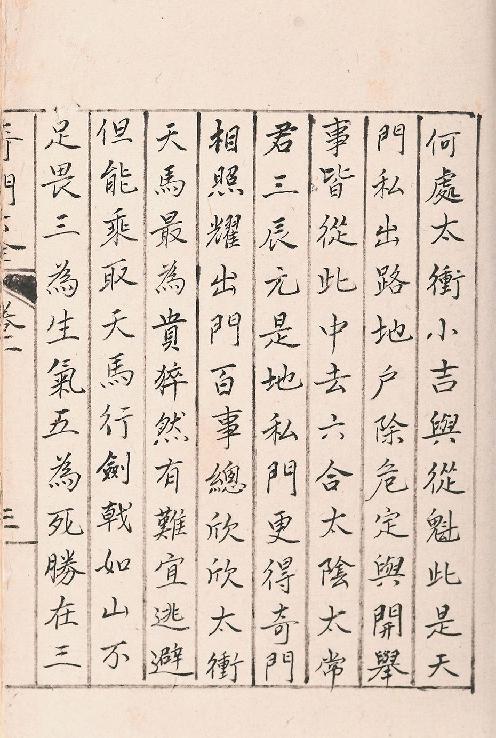 何處太衝小吉與從魁此是天
門私出路地户除危定與開舉
事皆從此中去六合太陰太常
君三辰元是地私門更得奇門
相照耀出門百事總欣欣太衝
天馬最為貴猝然有難宜逃避
但能乘取天馬行劍戟如山不
足畏三為生氣五為死勝在三